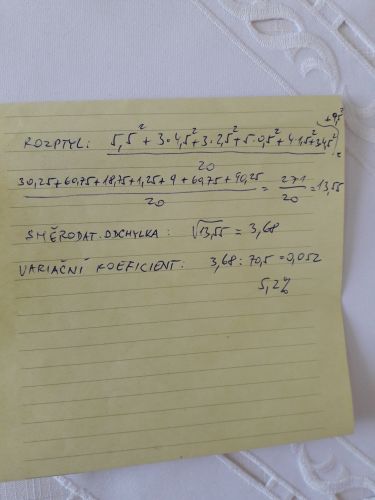 +9,5²
ROZPTYL: 5,5² + 3·4,5² + 3·2,5² + 5·0,5² + 4·1,5² + 3·4,5²
20
30,25 + 60,75 + 18,75 + 1,25 + 9 + 60,75 + 90,25 = 271 = 13,55
20 20
SMĚRODAT. ODCHYLKA: √13,55 = 3,68
VARIAČNÍ KOEFICIENT: 3,68 : 70,5 = 0,052
5,2%